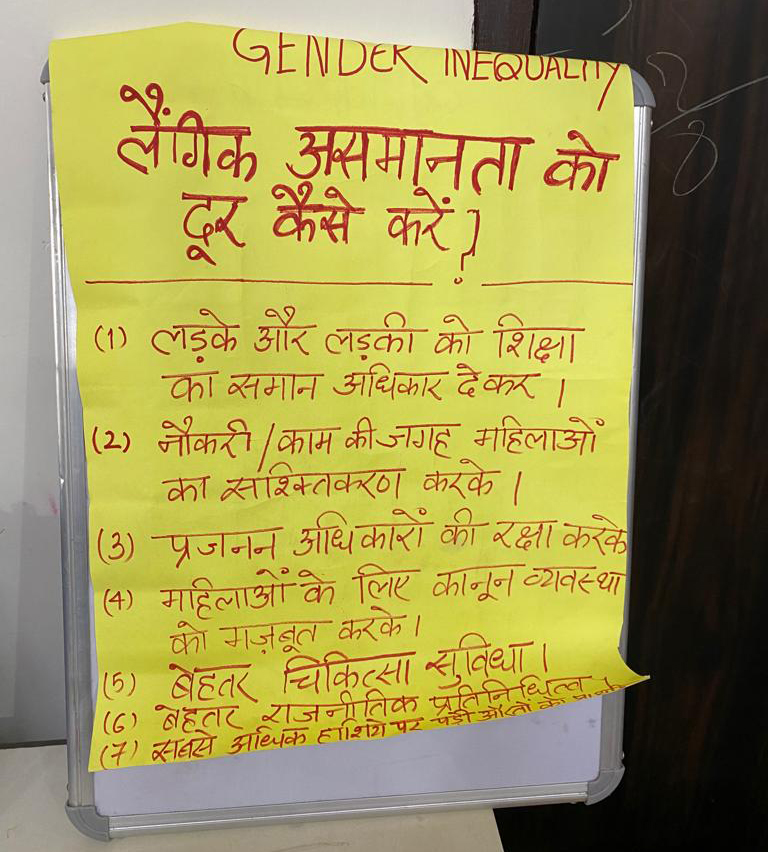 GENDER INEQUALITY
लैंगिक असमानता को
दूर कैसे करें?
(1) लड़के और लड़की को शिक्षा
का समान अधिकार देकर।
(2) नौकरी/काम की जगह महिलाओं
का सश्क्तिकरण करके।
(3) प्रजनन अधिकारों की रक्षा करके
(4) महिलाओं के लिए कानून व्यवस्था
को मज़बूत करके।
(5) बेहतर चिकित्सा सुविधा।
(6) बेहतर राजनीतिक प्रतिनिधित्व।
(7) सबसे अधिक हाशिये पर पड़ी औरतों को